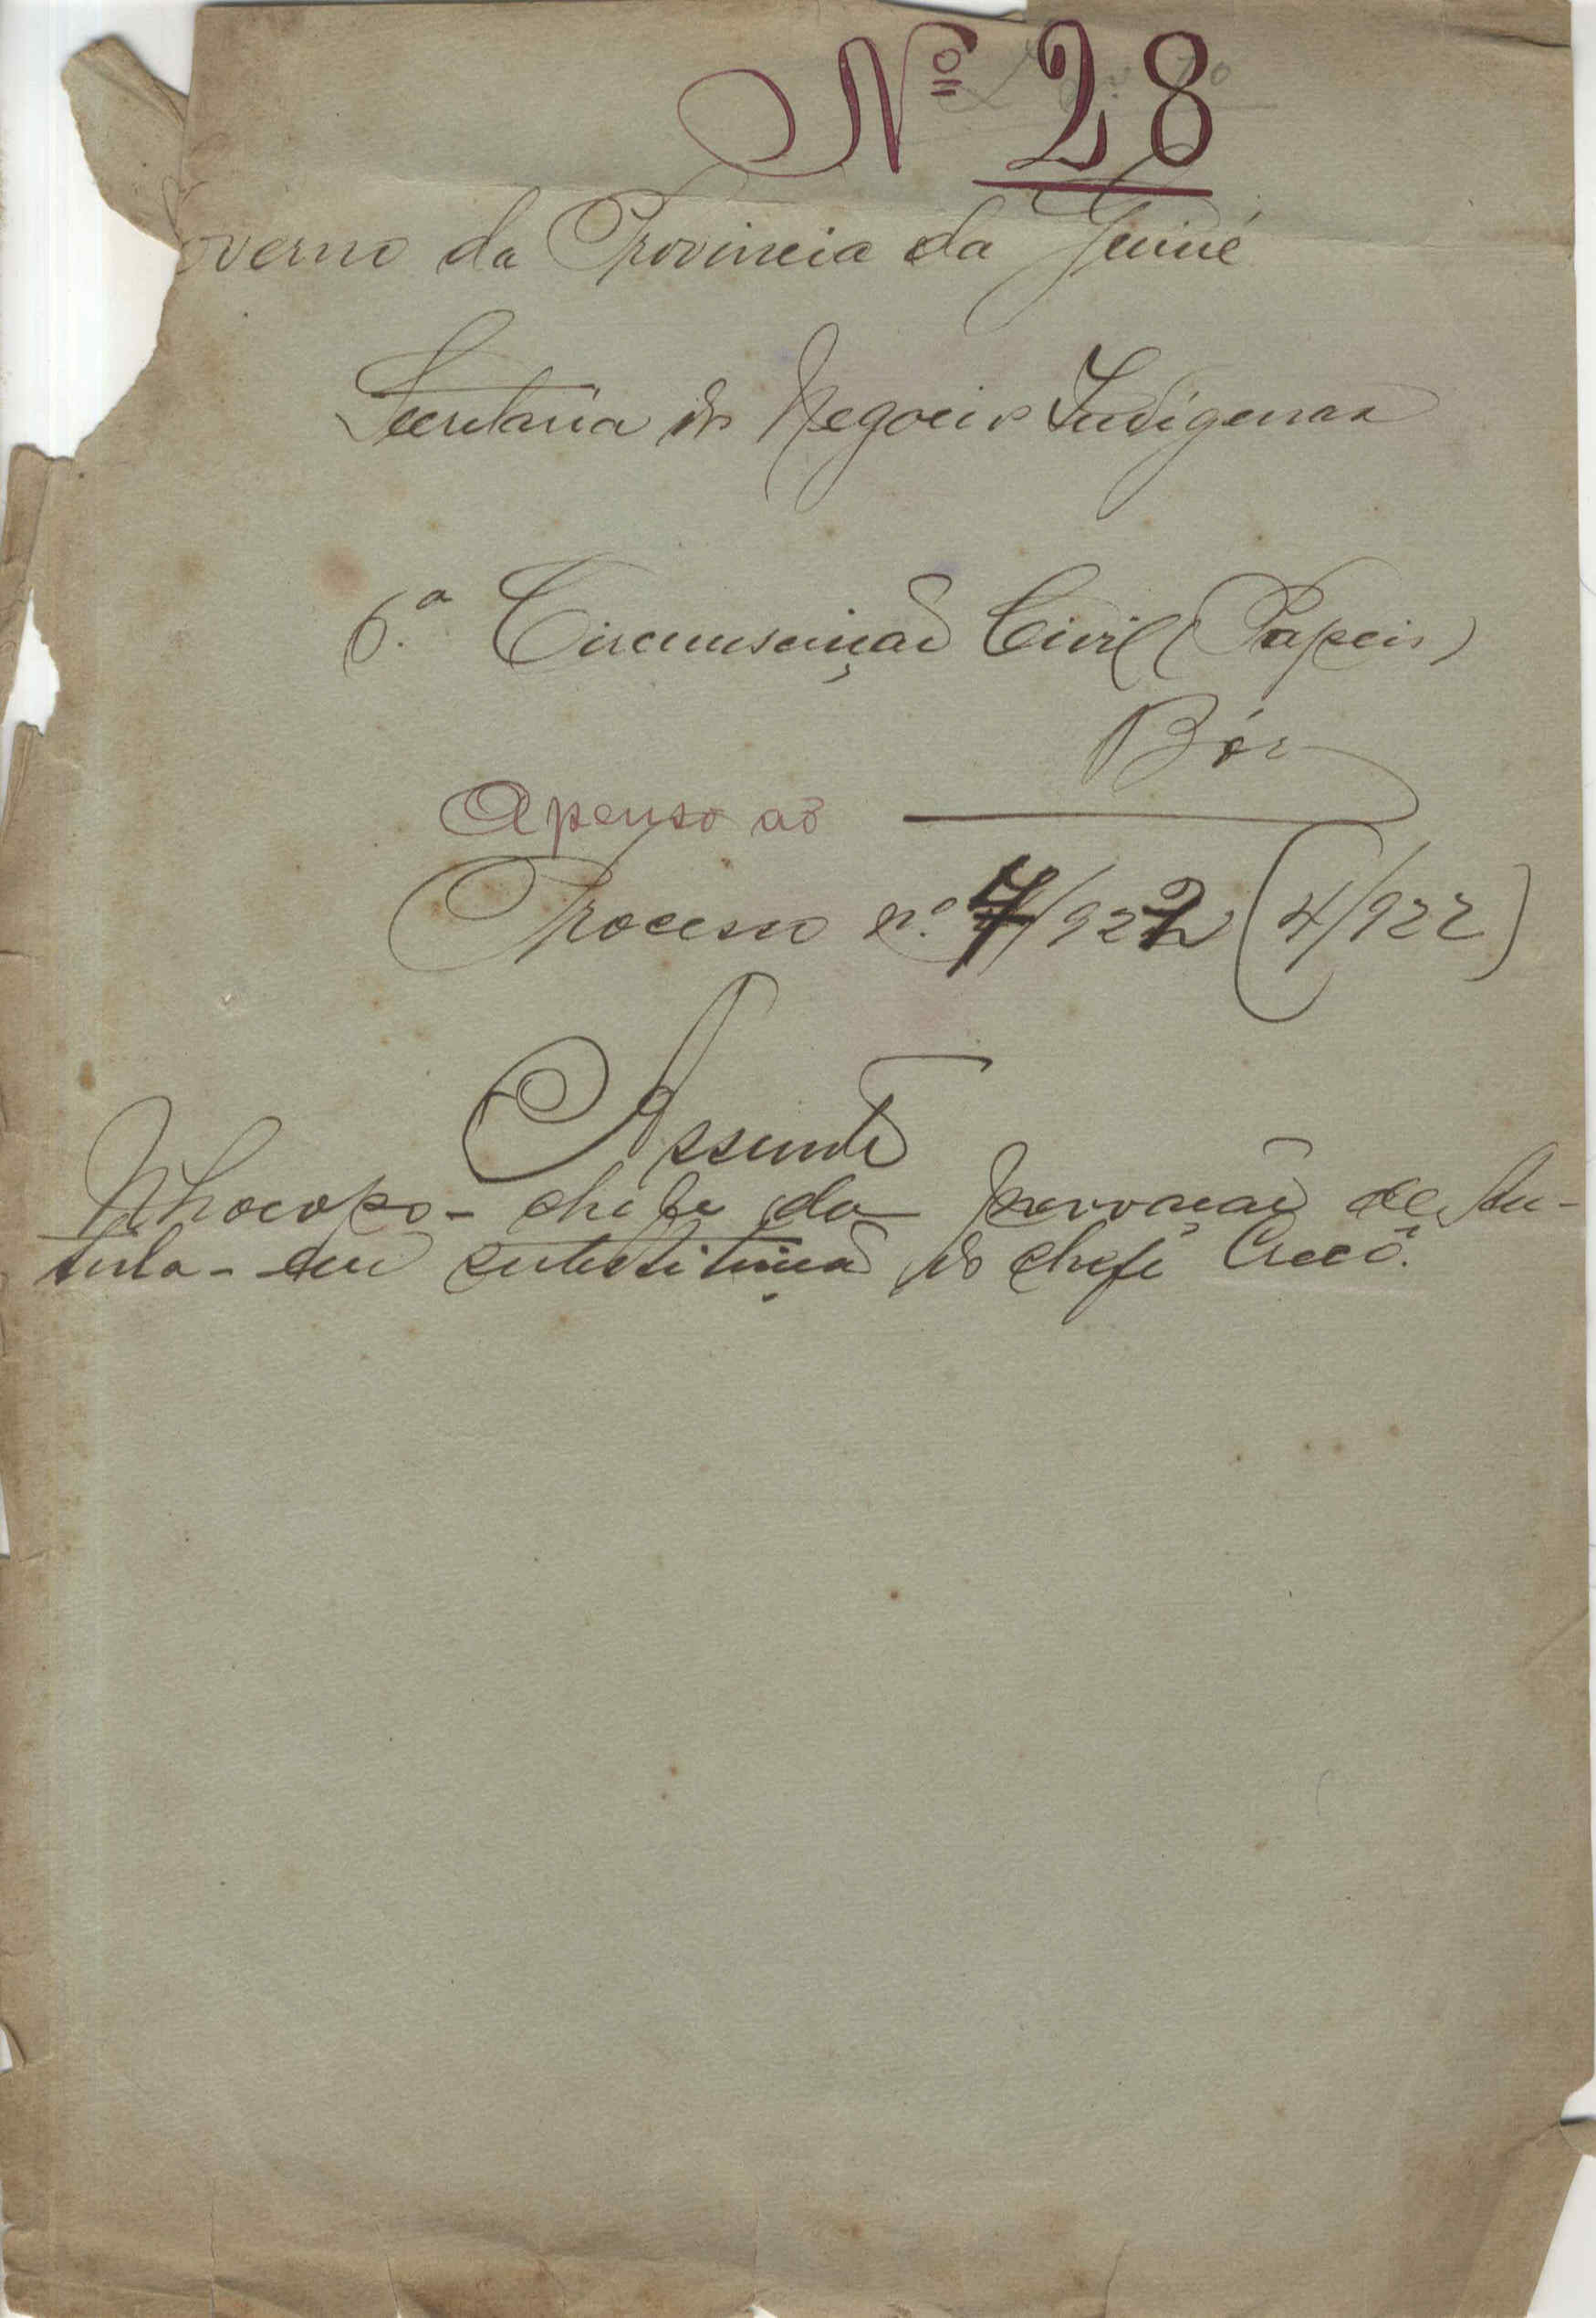 Nº 28
Governo da Provincia da Guiné
Secretaria dos Negocios Indigenas
6.ª Circumscrição Civil (Papeis)
Bór
Apenso ao
Processo n.º 4/922 (4/922)
Assunto
Nhocopo - chefe da povoação de An-
tula - em substituição do chefe Crecó.